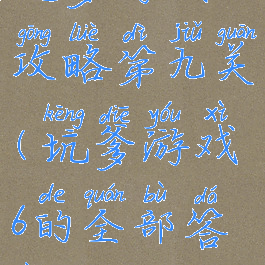 gōng lüè dì jiǔ guān
攻略第九关
kēng diē yóu xì
(坑爹游戏
de quán bù dá
6的全部答